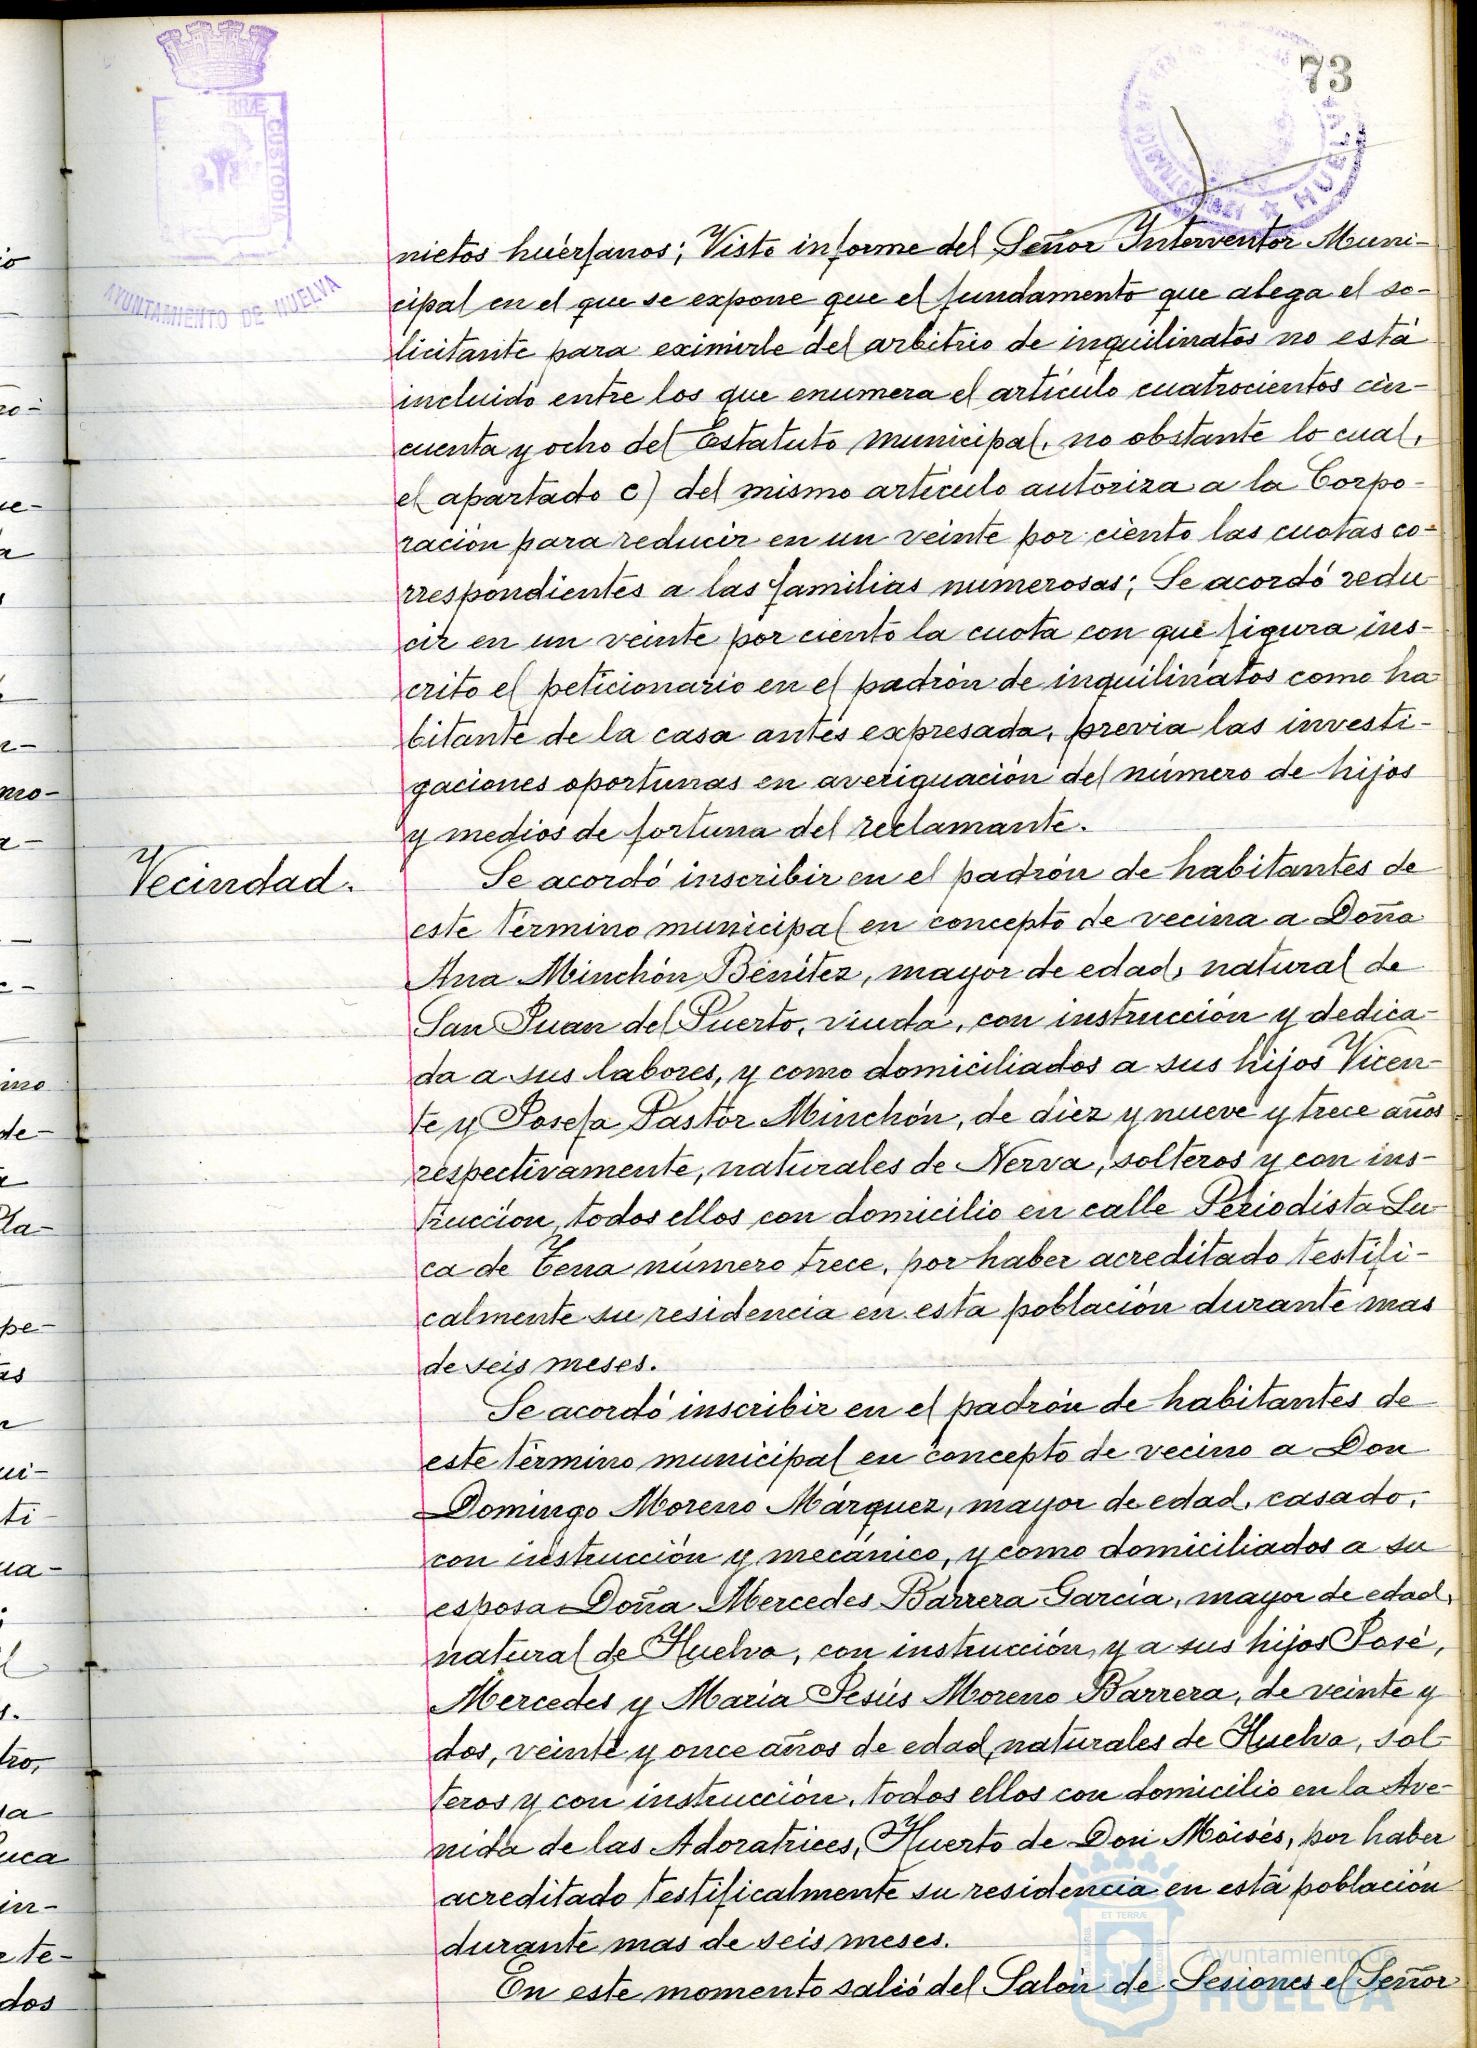 73
RRÆ
CUSTODIA
AYUNTAMIENTO DE HUELVA
HUELVA
nietos huérfanos; Visto informe del Señor Interventor Muni-
cipal en el que se expone que el fundamento que alega el so-
licitante para eximirle del arbitrio de inquilinatos no está
incluido entre los que enumera el artículo cuatrocientos cin-
cuenta y ocho del Estatuto municipal, no obstante lo cual,
el apartado c) del mismo artículo autoriza a la Corpo-
ración para reducir en un veinte por ciento las cuotas co-
rrespondientes a las familias numerosas; Se acordó redu
cir en un veinte por ciento la cuota con que figura ins-
crito el peticionario en el padrón de inquilinatos como ha
bitante de la casa antes expresada, previa las investi-
gaciones oportunas en averiguación del número de hijos
y medios de fortuna del reclamante.
Vecindad.
Se acordó inscribir en el padrón de habitantes de
este término municipal en concepto de vecina a Doña
Ana Minchón Benítez, mayor de edad, natural de
San Juan del Puerto, viuda, con instrucción y dedica-
da a sus labores, y como domiciliados a sus hijos Vicen-
te y Josefa Pastor Minchón, de diez y nueve y trece años
respectivamente, naturales de Nerva, solteros y con ins-
trucción, todos ellos con domicilio en calle Periodista Lu-
ca de Tena número trece, por haber acreditado testifi-
calmente su residencia en esta población durante mas
de seis meses.
Se acordó inscribir en el padrón de habitantes de
este término municipal en concepto de vecino a Don
Domingo Moreno Márquez, mayor de edad, casado,
con instrucción y mecánico, y como domiciliados a su
esposa Doña Mercedes Barrera García, mayor de edad,
natural de Huelva, con instrucción, y a sus hijos José,
Mercedes y María Jesús Moreno Barrera, de veinte y
dos, veinte y once años de edad, naturales de Huelva, sol-
teros y con instrucción, todos ellos con domicilio en la Ave-
nida de las Adoratrices, Huerto de Don Moisés, por haber
acreditado testificalmente su residencia en esta población
durante mas de seis meses.
En este momento salió del Salón de Sesiones el Señor
ET TERRÆ
Ayuntamiento de
HUELVA